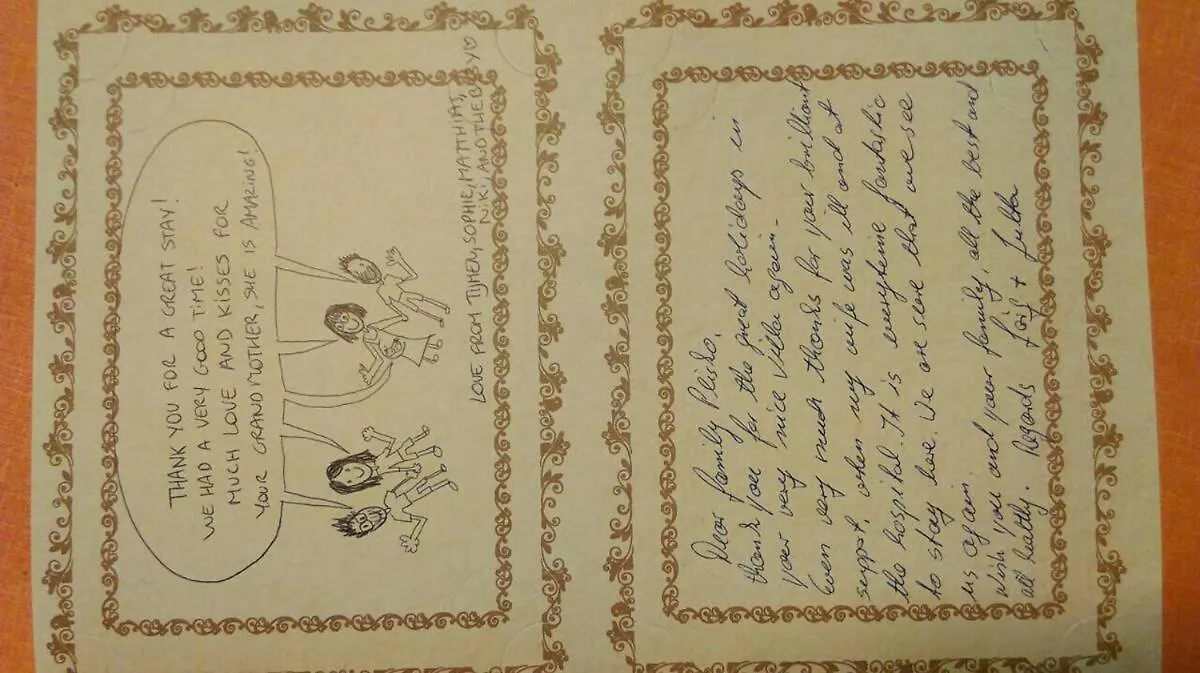 THANK YOU FOR A GREAT STAY!
WE HAD A VERY GOOD TIME!
MUCH LOVE AND KISSES FOR
YOUR GRANDMOTHER, SHE IS AMAZING!
LOVE FROM TIJMEN, SOPHIE, MATTHIAS,
NIKI, AND THE BABY♡
Dear family
thank you for the great holidays in
your very nice Villa again.
Even very much thanks for your brilliant
support, when my wife was ill and at
the hospital. It is everytime fantastic
to stay here. We are sure that we see
us again
Wish you and your family, all the best and
all healthy. Regards +